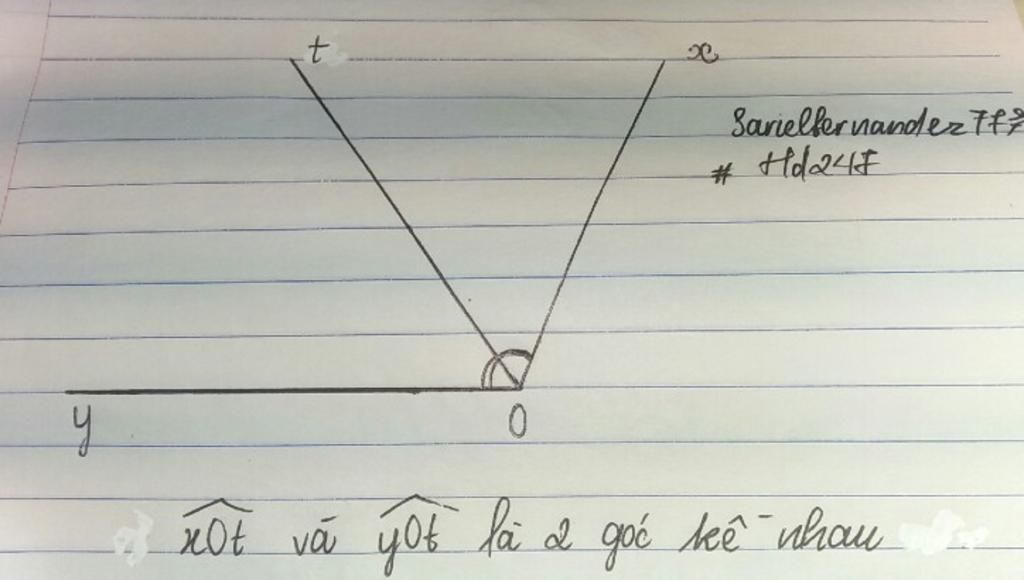 t
x
Sarielfernandez 7f
# Hd247
y
O
xOt và yOt là 2 góc kề nhau